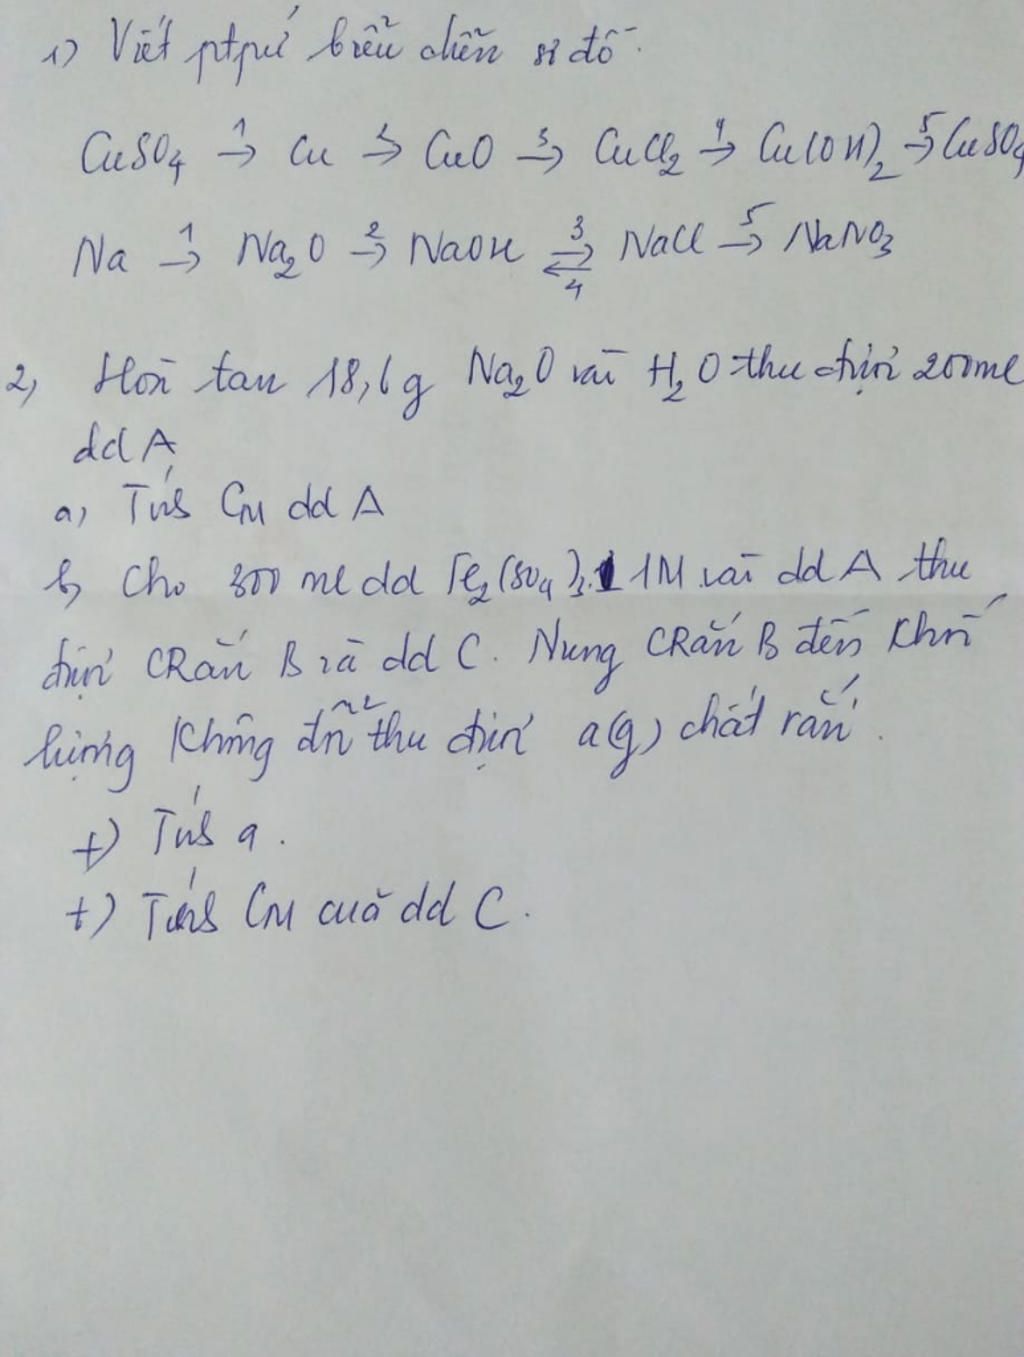 1) Viết ptpứ biểu diễn sơ đồ.
CuSO4 →1 Cu →2 CuO →3 CuCl2 →4 Cu(OH)2 →5 CuSO4
Na →1 Na2O →2 NaOH ⇌3 4 NaCl →5 NaNO3
2, Hoà tan 18,6g Na2O vào H2O thu được 200ml
dd A
a, Tính CM dd A
b, Cho 300 ml dd Fe2(SO4)3 1M vào dd A thu
được CRắn B và dd C. Nung CRắn B đến khối
lượng không đổi thu được a(g) chất rắn.
+) Tính a.
+) Tính CM của dd C.